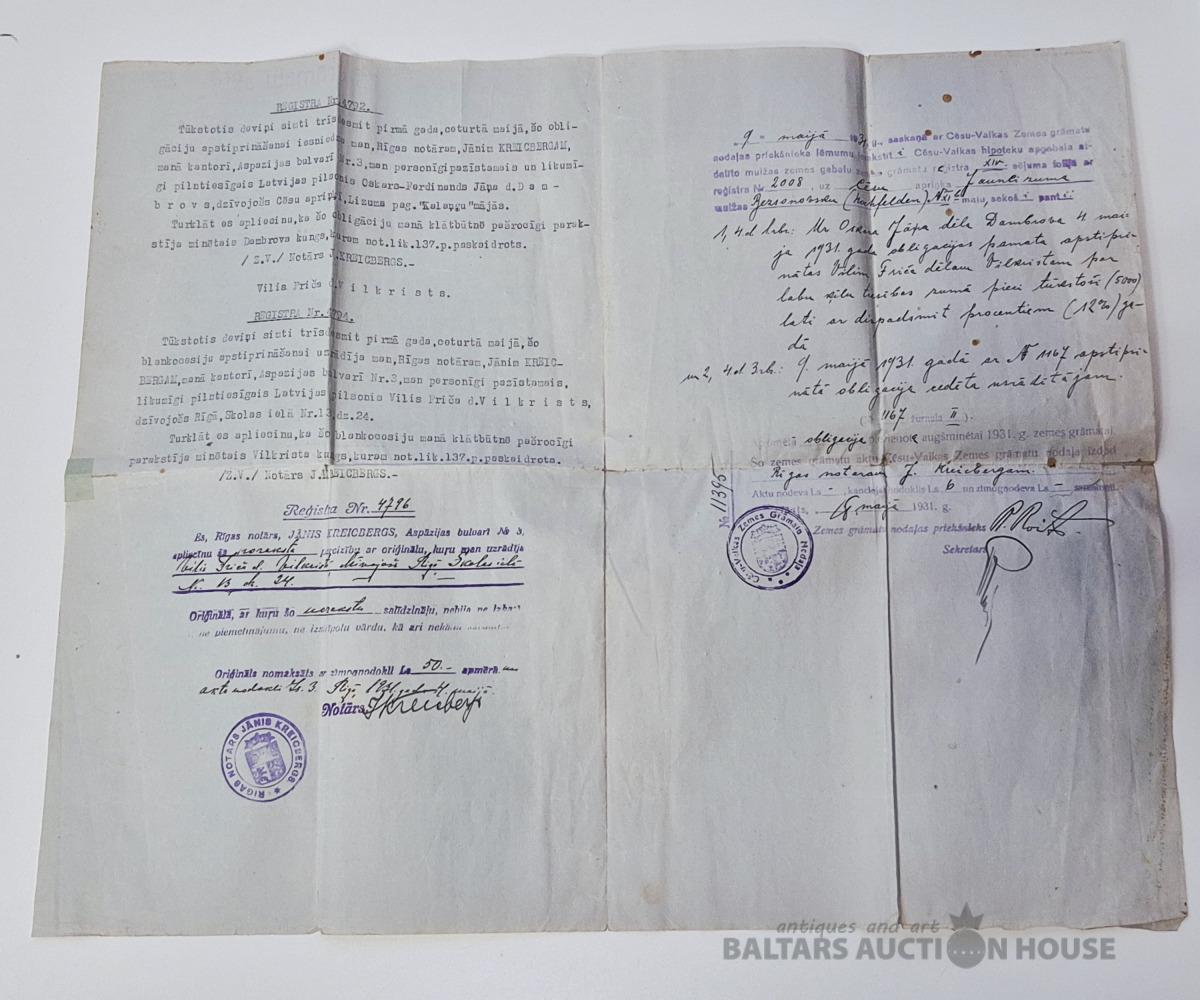 REĢISTRA Nr.4792.
Tūkstotis deviņi simti trīsdesmit pirmā gada, ceturtā maijā, šo obli-
gāciju apstiprināšanai iesniedza man, Rīgas notāram, Jānim KREICBERGAM,
manā kantorī, Aspazijas bulvarī Nr.3, man personīgi pazīstamais un likumī-
gi pilntiesīgais Latvijas pilsonis Oskars-Ferdinands Jāņa d. D a m -
b r o v s, dzīvojošs Cēsu apriņķī, Lizuma pag. mājās.
Turklāt es apliecinu, ka šo obligāciju manā klātbūtnē pašrocīgi parak-
stīja minētais Dambrova kungs, kuram not.lik.137.p.paskaidrots.
/Z.V./ Notārs J.KREICBERGS.-
Vilis Friča d. V i l k r i s t s.
REĢISTRA Nr.4794.
Tūkstotis deviņi simti trīsdesmit pirmā gada, ceturtā maijā, šo
blankocesiju apstiprināšanai uzrādīja man, Rīgas notāram, Jānim KREIC-
BERGAM, manā kantorī, Aspazijas bulvarī Nr.3, man personīgi pazīstamais,
likumīgi pilntiesīgais Latvijas pilsonis Vilis Friča d. V i l k r i s t s,
dzīvojošs Rīgā, Skolas ielā Nr.13, dz.24.
Turklāt es apliecinu, ka šo blankocesiju manā klātbūtnē pašrocīgi
parakstīja minētais Vilkrista kungs, kuram not.lik.137.p.paskaidrots.
/Z.V./ Notārs J.KREICBERGS.-
Reģistra Nr. 4796
Es, Rīgas notārs, JĀNIS KREICBERGS, Aspāzijas bulvarī № 3,
apliecinu šā noraksta pareizību ar oriģinālu, kuru man uzrādīja
Vilis Friča d. Vilkrists dzīvojošs Rīgā Skolas ielā
N. 13 dz. 24.
Oriģinālā, ar kuru šo norakstu salīdzināju, nebija ne izbarst
ne piemetinājumu, ne izsvītrotu vārdu, kā arī nekādu
Oriģināls nomaksāts ar zīmognodokli Ls 50.- apmērā un
akts nodokli Ls. 3. Rīgā, 1931. gada 4. maijā
Notārs JKreicbergs
RĪGAS NOTARS JĀNIS KREICBERGS
9. maijā 1931. g. saskaņā ar Cēsu-Valkas Zemes grāmatu
nodaļas priekšnieka lēmumu, ierakstīti Cēsu-Valkas hipoteku apgabala at-
dalīto muižas zemes gabalu zemes grāmatu reģistra XIV. sējuma folijā ar
reģistra Nr. 2008, uz Cēsu apriņķa Jaunlizuma
muižas Bersonovsku (Kochfelden) № XI b māju, sekoši panti:
1, 4.d 1.rb: Uz Oskara Jāņa dēla Dambrova 4 mai-
jā 1931. gada obligācijas pamata apstipri-
nātas Vilim Friča dēlam Vilkristam par
labu ķīlu tiesības sumā pieci tūkstoši (5000)
lati ar divpadsmit procentiem (12%) ga-
dā
un 2, 4.d 3.rb: 9. maijā 1931. gadā ar № 1167 apstipri-
nātā obligācija cedēta uzrādītājam.
(Ž. 1167 žurnala II).-
Apzīmetā obligācija pievenota augšminētai 1931. g. zemes grāmatai
Šo zemes grāmatu aktu Cēsu-Valkas Zemes grāmatu nodaļa izdod
Rīgas notaram J. Kreicbergam
Aktu nodeva Ls -, kancejas nodoklis Ls 6 un zīmognodeva Ls - samaksāti.
maijā 1931. g.
Zemes grāmatu nodaļas priekšnieks
Sekretārs
№ 11395
Cēsu-Valkas Zemes Grāmatu Nodaļa
antiques and art
BALTARS AUCTION HOUSE